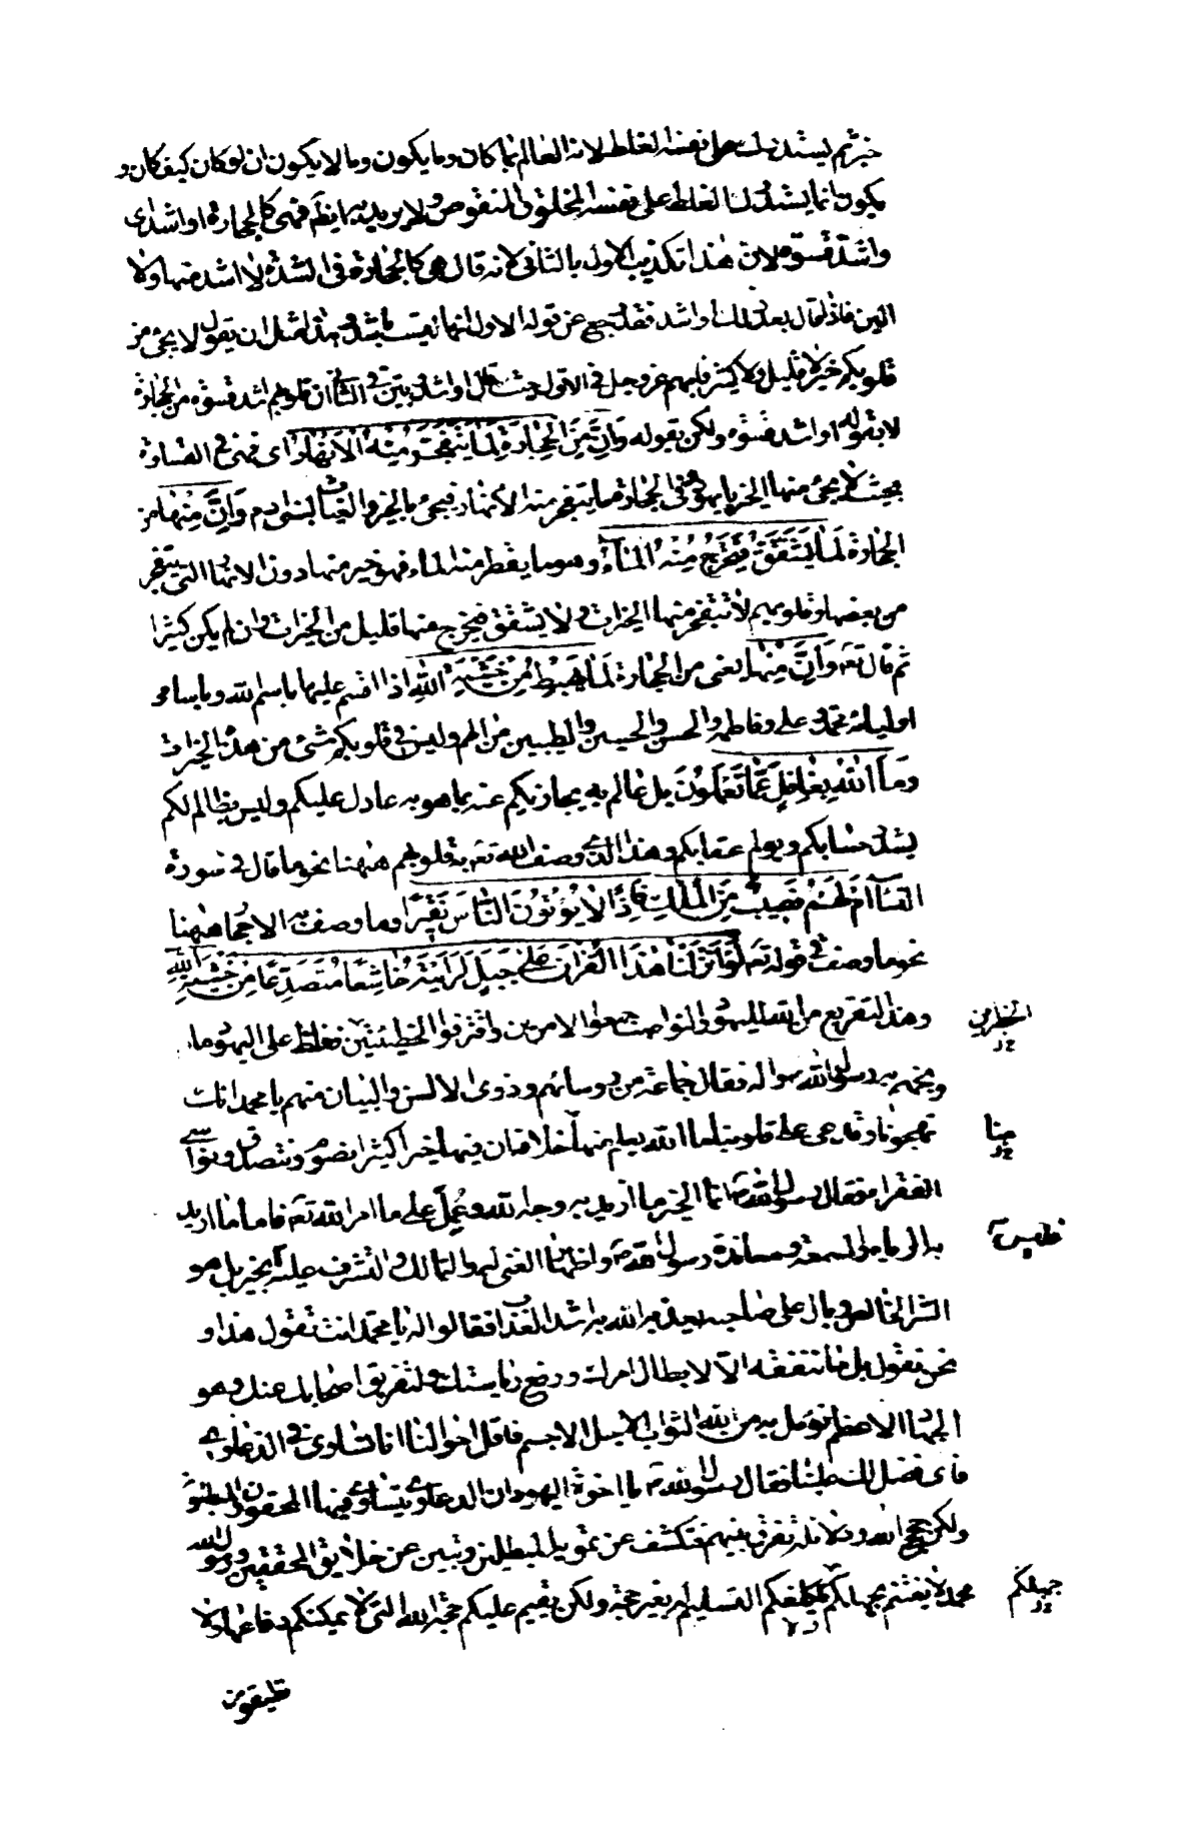 خبر ثم يستدرك على نفسه الغلط لانه العالم بما كان وما يكون وما لا يكون ان لو كان كيف كان و
يكون وانما يستدرك الغلط على نفسه المخلوق المنقوص ولا يريد به ايضا فهى كالحجارة او اشد اى
واشد قسوة لان هذا تكذيب الاول بالثانى لانه قال هى كالحجارة فى الشدة لا اشد منها ولا
الين فاذا قال بعد ذلك او اشد فقد رجع عن قوله الاول انها ليست باشد وهذا مثل ان يقول لا يجئ من
قلوبكم خير لا قليل ولا كثير فابهم عز وجل فى الاول حيث قال او اشد وبين فى الثانى ان قلوبهم اشد قسوة من الحجارة
لا بقوله او اشد قسوة ولكن بقوله وَاِنَّ مِنَ الْحِجارَةِ لَمَا يَتَفَجَّرُ مِنْهُ الْاَنْهارُ اى فهى فى القساوة
بحيث لا يجئ منها الخير يا يهود وفى الحجارة ما يتفجر منه الانهار فيجئ بالخير والغياث لبنى ادم وَاِنَّ مِنْها من
الحجارة لَمَا يَشَّقَّقُ فَيَخْرُجُ مِنْهُ الْماءُ وهو ما يقطر منه الماء فهو خير منها دون الانهار التى يتفجر
من بعضها وقلوبهم لا تتفجر منها الخيرات ولا يشقق فيخرج منها قليل من الخيرات وان لم يكن كثيرا
ثم قال تعه وَاِنَّ مِنْها يعنى من الحجارة لَمَا يَهْبِطُ مِنْ خَشْيَةِ اللهِ اذا اقسم عليها باسم الله وباسامى
اوليائه محمد وعلى وفاطمة والحسن والحسين والطيبين من الهم وليس فى قلوبكم شئ من هذه الخيرات
وَمَا اللهُ بِغافِلٍ عَمَّا تَعْمَلُونَ بل عالم به يجازيكم عنه بما هو به عادل عليكم وليس بظالم لكم
يشدد حسابكم ويولم عقابكم وهذا الذى وصف الله تعه به قلوبهم هيهنا نحو ما قال فى سورة
النساء اَمْ لَهُمْ نَصِيبٌ مِنَ الْمُلْكِ فَاِذًا لا يُؤْتُونَ النَّاسَ نَقِيرًا وما وصف به الاحجار هيهنا
نحو ما وصف فى قوله تعه لَوْ اَنْزَلْنا هذَا الْقُرْانَ عَلى جَبَلٍ لَرَاَيْتَهُ خاشِعًا مُتَصَدِّعًا مِنْ خَشْيَةِ اللهِ
وهذا التقريع من الله لليهود والنواصب جمعوا الامرين واقترفوا الخطيئتين فغلظ على اليهود ما
وبخهم به رسول الله ص واله فقال جماعة من رؤسائهم وذوى الالسن والبيان منهم يا محمد انك
تهجونا وتدعى على قلوبنا ما الله يعلم منها خلافه ان فيها خيرا كثيرا نصوم ونتصدق ونواسى
الفقراء فقال رسول الله ص انما الخير ما اريد به وجه الله وعمل على ما امر الله تعه فاما ما اريد
به الرياء والسمعة ومعاندة رسول الله ص واظهار الغنى له والتمالك والتشرف عليه فليس بخير بل هو
الشر الخالص وبال على صاحبه يعذبه الله به اشد العذاب فقالوا له يا محمد انت تقول هذا و
نحن نقول بل ما ننفقه الا لابطال امرك ودفع رياستك ولتفريق اصحابك عنك وهو
الجهاد الاعظم نؤمل به من الله الثواب الاجل الاجسم فاقل احوالنا انا تساوى فى الدعاوى
فاى فضل لك علينا فقال رسول الله ص يا اخوة اليهود ان الدعاوى يتساوى فيها المحقون والمبطلون
ولكن حجج الله ودلائله تفرق بينهم فتكشف عن تمويه المبطلين وتبين عن حقايق المحقين ورسول الله
محمد لا يغتنم بجهلكم ولا يكلفكم التسليم له بغير حجة ولكن يقيم عليكم حجة الله التى لا يمكنكم دفاعها ولا
تطيقون
جهلكم